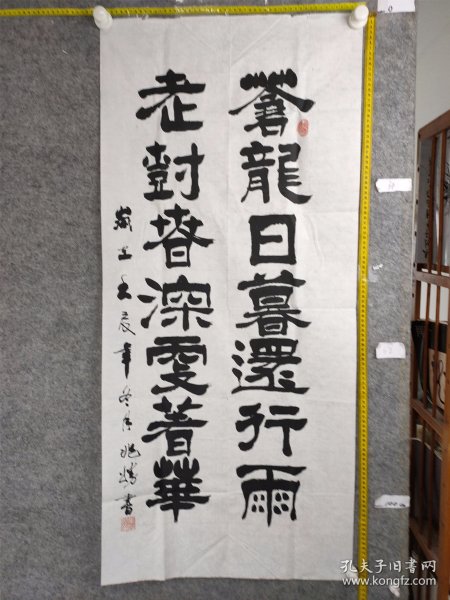 蒼龍日暮還行雨
老尌春深更著華
歲在壬辰年冬月兆書
孔夫子旧书网
www.kongfz.com